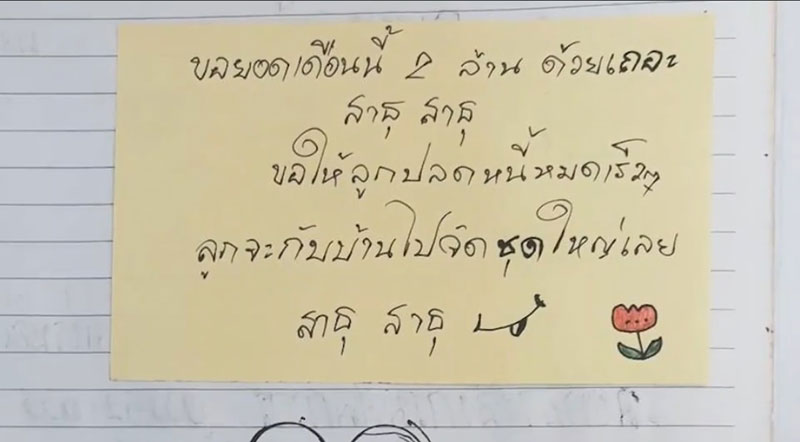 ขอยอดเดือนนี้ 2 ล้าน ด้วยเถอะ
สาธุ สาธุ
ขอให้ลูกปลดหนี้หมดเร็วๆ
ลูกจะกลับบ้านไปจัดชุดใหญ่เลย
สาธุ สาธุ